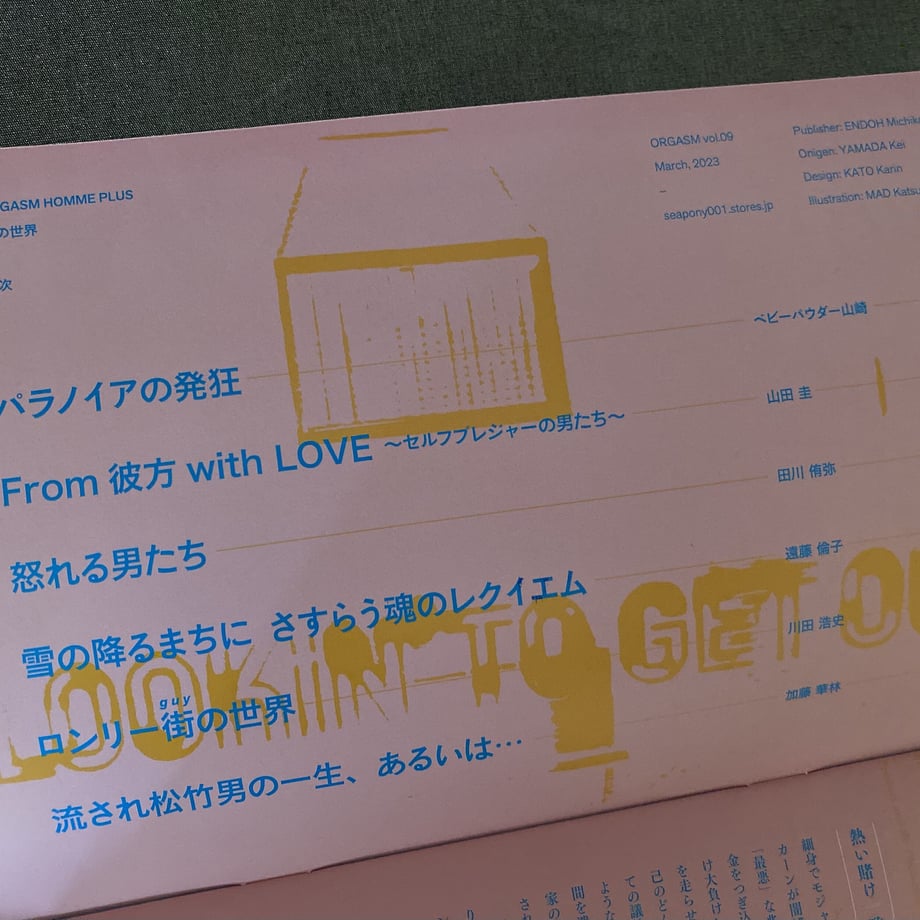 GASM HOMME PLUS
の世界
次
ORGASM vol.09
March, 2023
–
seapony001.stores.jp
Publisher: ENDOH Michik
Onigen: YAMADA Kei
Design: KATO Karin
Illustration: MAD Katsu
パラノイアの発狂 ベビーパウダー山崎
From 彼方 with LOVE 〜セルフプレジャーの男たち〜 山田 圭
怒れる男たち 田川 侑弥
雪の降るまちに さすらう魂のレクイエム 遠藤 倫子
guy
ロンリー街の世界 川田 浩史
流され松竹男の一生、あるいは… 加藤 華林
LOOKIN' TO GET OU
熱い賭け
細身でモジ
カーンが聞
「最悪」な
金をつぎ込
け大負け
を走らせ
己のどん
ての議
ような
間を
家の
され
り